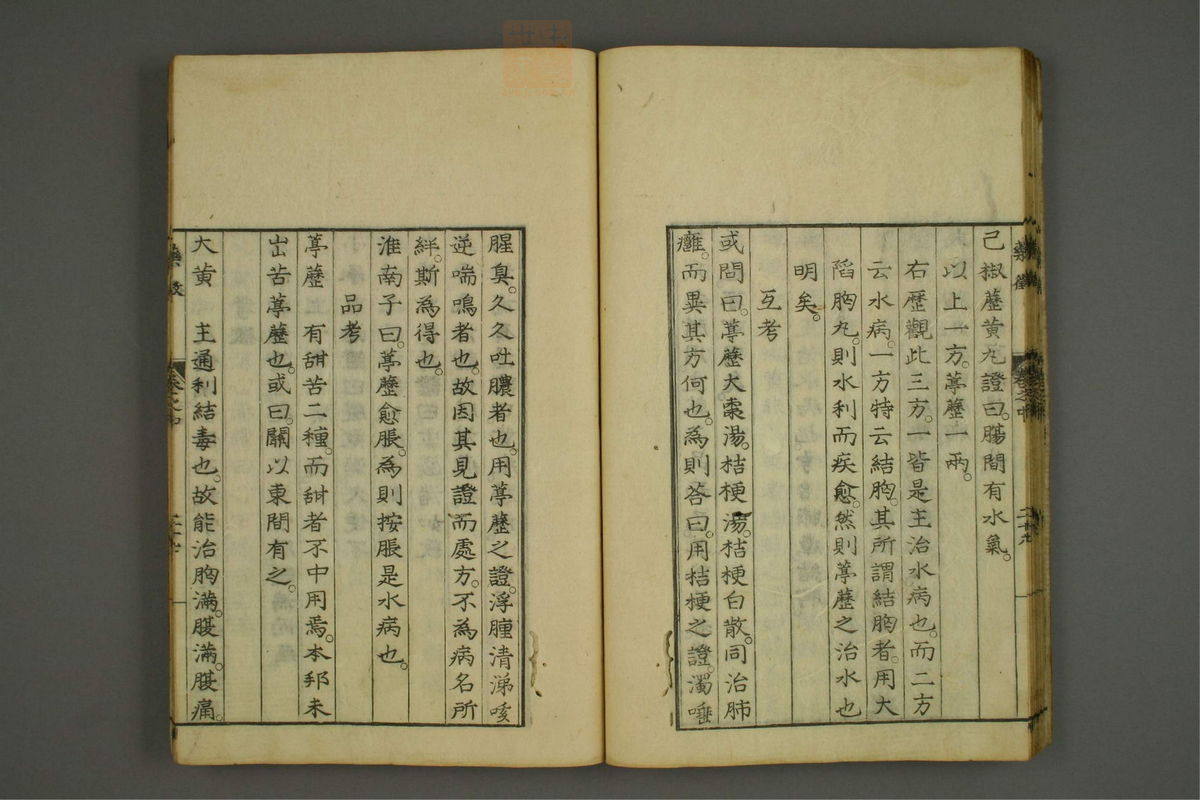 己椒藶黃丸證曰。腸間有水氣。
以上一方。葶藶一兩。
右歷觀此三方。一皆是主治水病也。而二方
云水病。一方特云結胸。其所謂結胸者。用大
陷胸丸。則水利而疾愈。然則葶藶之治水也
明矣。
互考
或問曰。葶藶大棗湯。桔梗湯。桔梗白散。同治肺
癰。而異其方何也。為則答曰。用桔梗之證。濁唾
腥臭。久久吐膿者也。用葶藶之證。浮腫清涕咳
逆喘鳴者也。故因其見證而處方。不為病名所
絆。斯為得也。
淮南子曰。葶藶愈脹。為則按脹是水病也。
品考
葶藶 有甜苦二種。而甜者不中用焉。本邦未
出苦葶藶也。或曰。關以東間有之。
大黃 主通利結毒也。故能治胸滿。腹滿。腹痛。
藥徵 卷之中